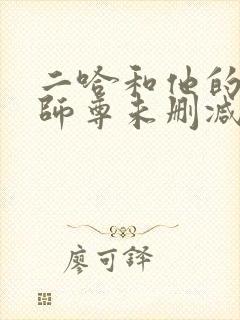 二哈和他的
师尊未删减
廖可铎